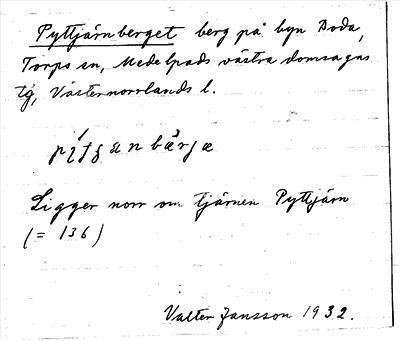 Pyttjärnberget berg på byn Boda,
Torps sn, Medelpads västra domsagas
tg, Västernorrlands l.
Ligger norr om tjärnen Pyttjärn
(= 136)
Valter Jansson 1932.